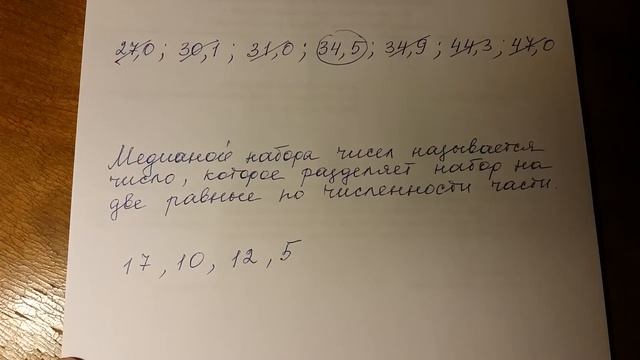 27,0; 30,1; 31,0; 34,5; 34,9; 44,3; 47,0
Медианой набора чисел называется
число, которое разделяет набор на
две равные по численности части.
17, 10, 12, 5